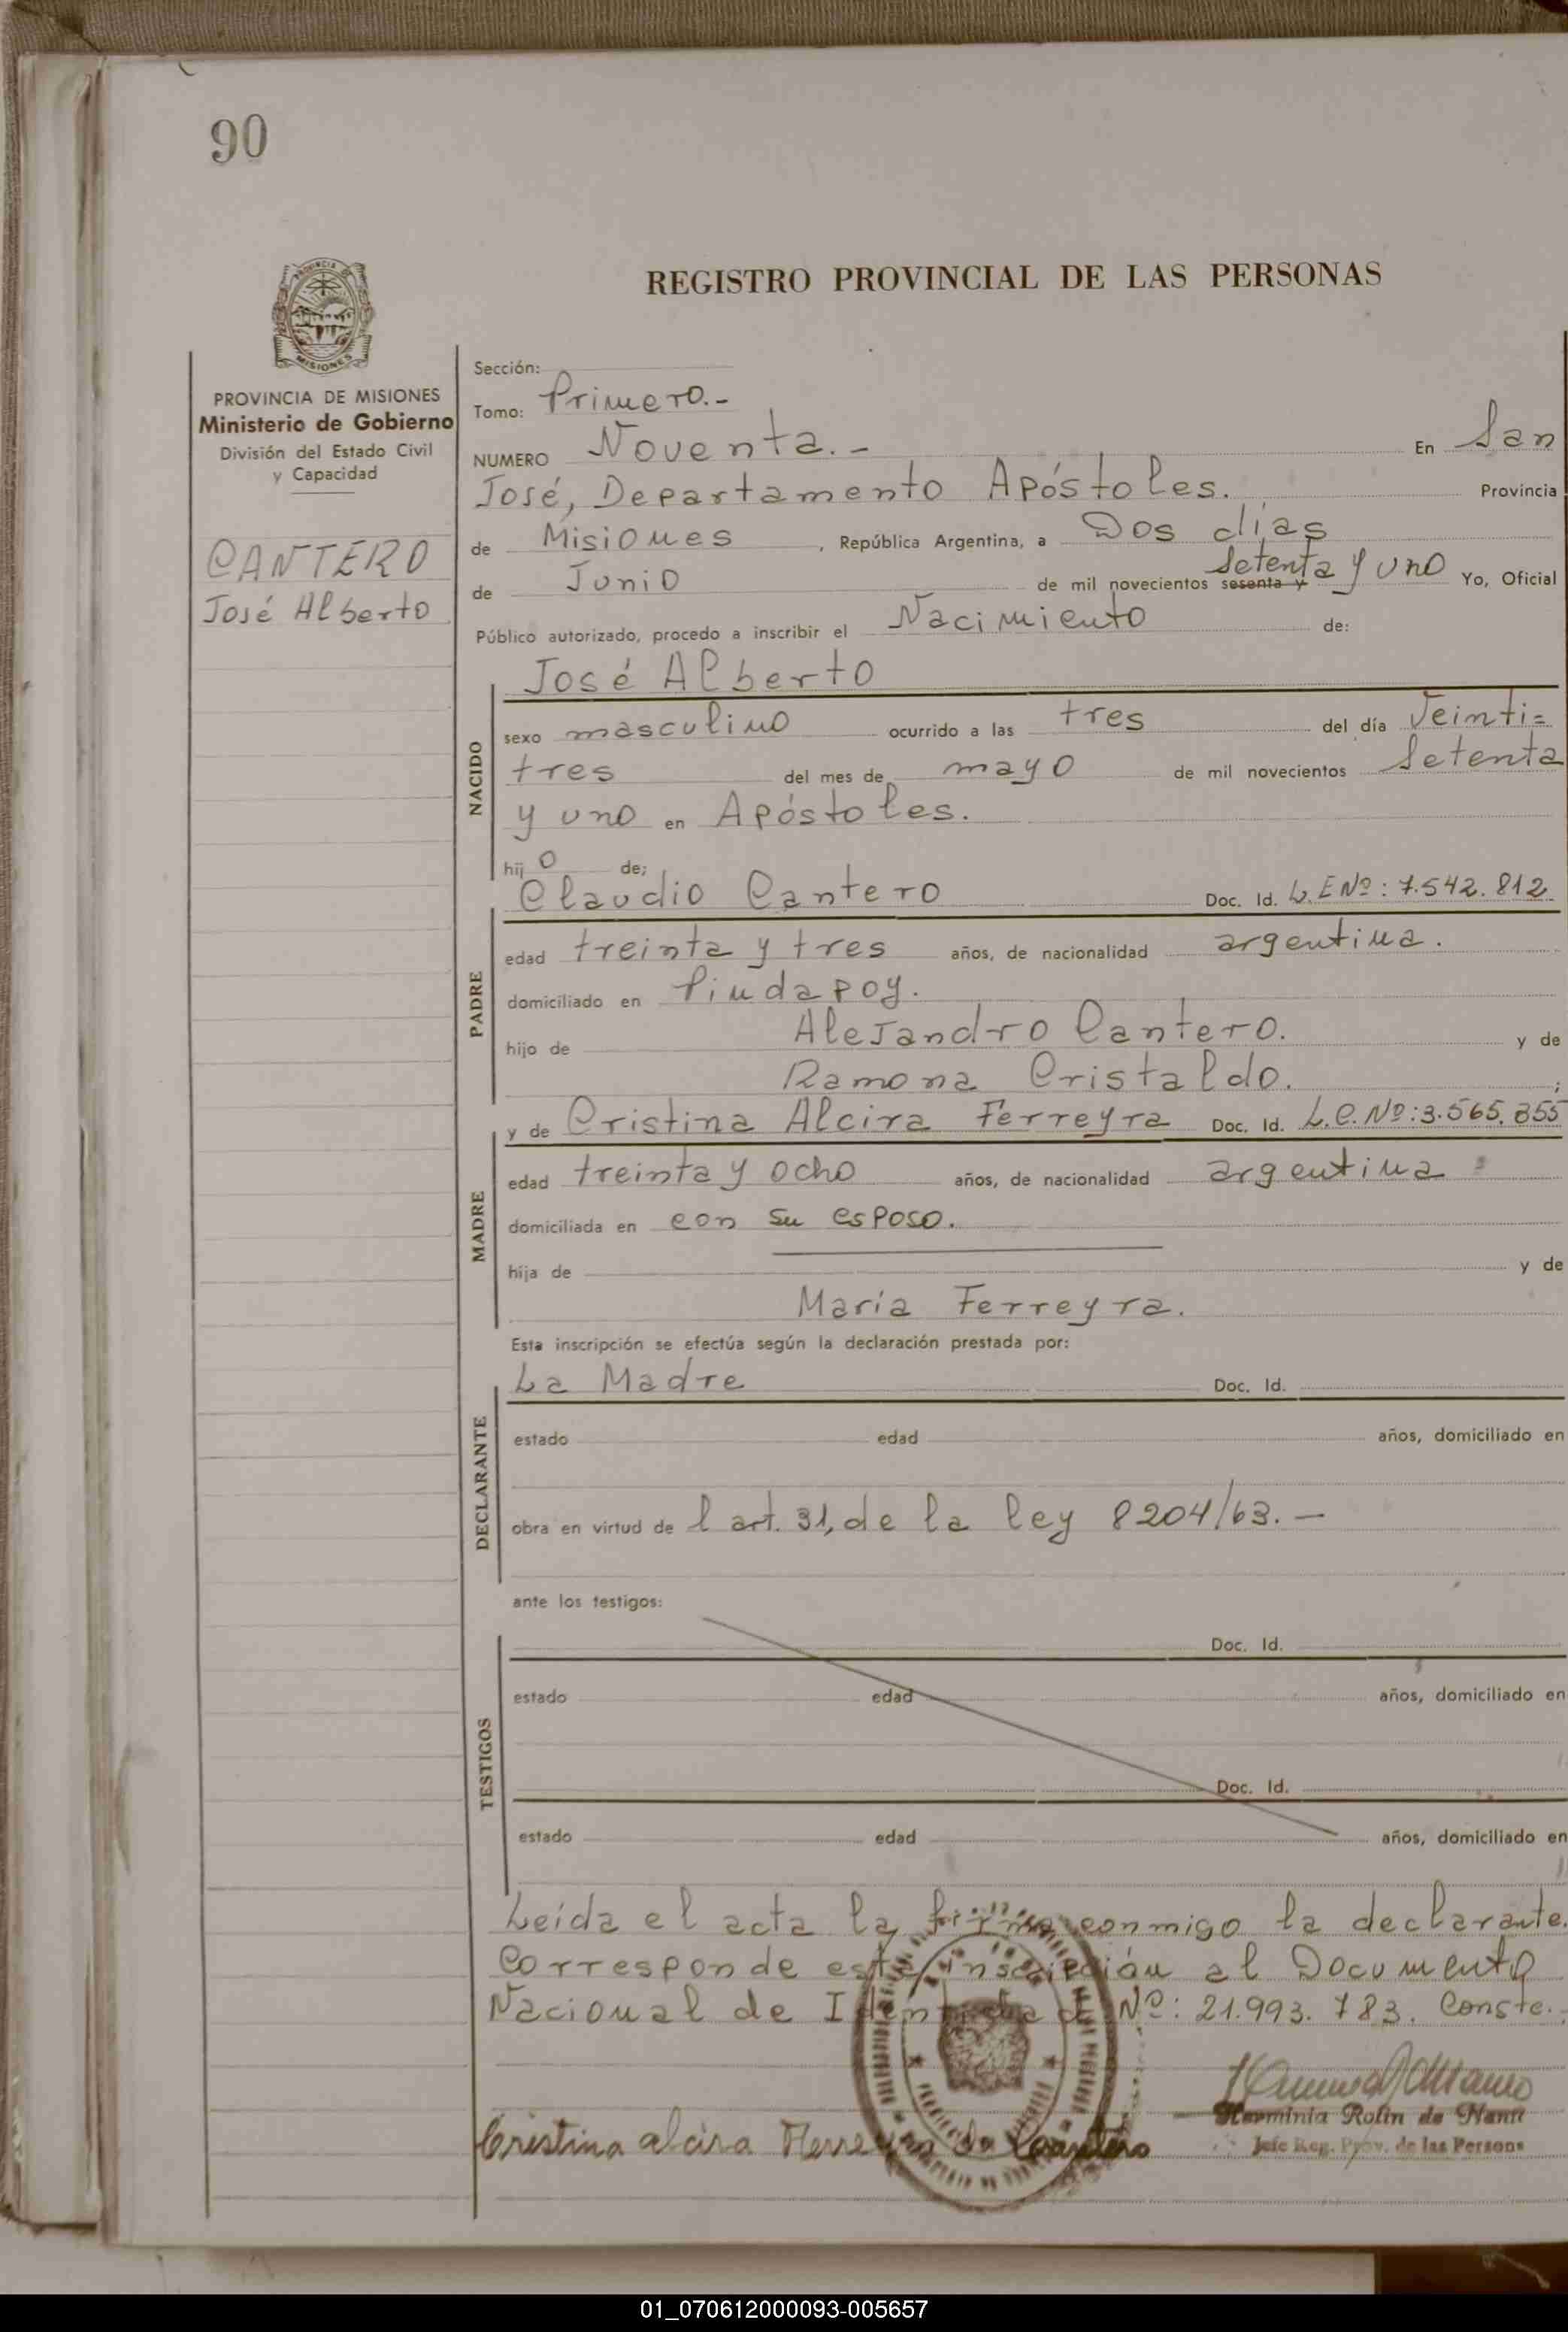 90
REGISTRO PROVINCIAL DE LAS PERSONAS
PROVINCIA DE MISIONES
Ministerio de Gobierno
División del Estado Civil
y Capacidad
CANTERO
José Alberto
Sección:
Tomo: Primero.-
NUMERO Noventa.- En San
José, Departamento Apóstoles. Provincia
de Misiones, República Argentina, a Dos días
de Junio de mil novecientos sesenta y Setenta y uno Yo, Oficial
Público autorizado, procedo a inscribir el Nacimiento de:
NACIDO
José Alberto
sexo masculino ocurrido a las tres del día Veinti=
tres del mes de mayo de mil novecientos Setenta
y uno en Apóstoles.
hijo de;
PADRE
Claudio Cantero Doc. Id. L.E Nº: 7.542.812
edad treinta y tres años, de nacionalidad argentina.
domiciliado en Pindapoy.
hijo de Alejandro Cantero. y de
Ramona Cristaldo. ;
MADRE
y de Cristina Alcira Ferreyra Doc. Id. L.C. Nº: 3.565.855
edad treinta y ocho años, de nacionalidad argentina
domiciliada en con su esposo.
hija de y de
María Ferreyra.
Esta inscripción se efectúa según la declaración prestada por:
DECLARANTE
La Madre Doc. Id.
estado edad años, domiciliado en
obra en virtud de l art. 31, de la ley 8204/63.-
ante los testigos:
TESTIGOS
Doc. Id.
estado edad años, domiciliado en
Doc. Id.
estado edad años, domiciliado en
Leída el acta la firma conmigo la declarante.
Corresponde esta inscripción al Documento
Nacional de Identidad Nº: 21.993.783. Conste.
Cristina alcira Ferreyra de Cantero
Herminia Rolin de Nanni
Jefe Reg. Prov. de las Persons
01_070612000093-005657